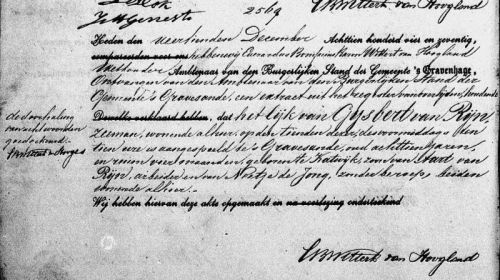 Blok
J. H. Generste 2569 CRWitterk van Hoogland
Heden den veertienden December Achttien honderd vier en zeventig,
compareerden voor ons hebben wij
Ambtenaar van den Burgerlijken Stand der Gemeente 's Gravenhage,
Ontvangen van den Ambtenaar van den Burgerlijken Stand der
Gemeente 's Gravesande, een extract uit het register van overlijden, houdende
Dewelke verklaard hebben, dat het lijk van Gijsbert van Rijn,
zeeman, wonende alhier, op den tienden dezer, des voormiddags tien
ure is aangespoeld te 's Gravesande, oud achttien jaren,
en geboren te Katwijk, zoon van van
Rijn, arbeider en van Neeltje de Jong, zonder beroep, beiden
wonende alhier.
Wij hebben hiervan deze akte opgemaakt en na voorlezing onderteekend
de doorhaling
van acht woorden
goedgekeurd.
van Hoogland